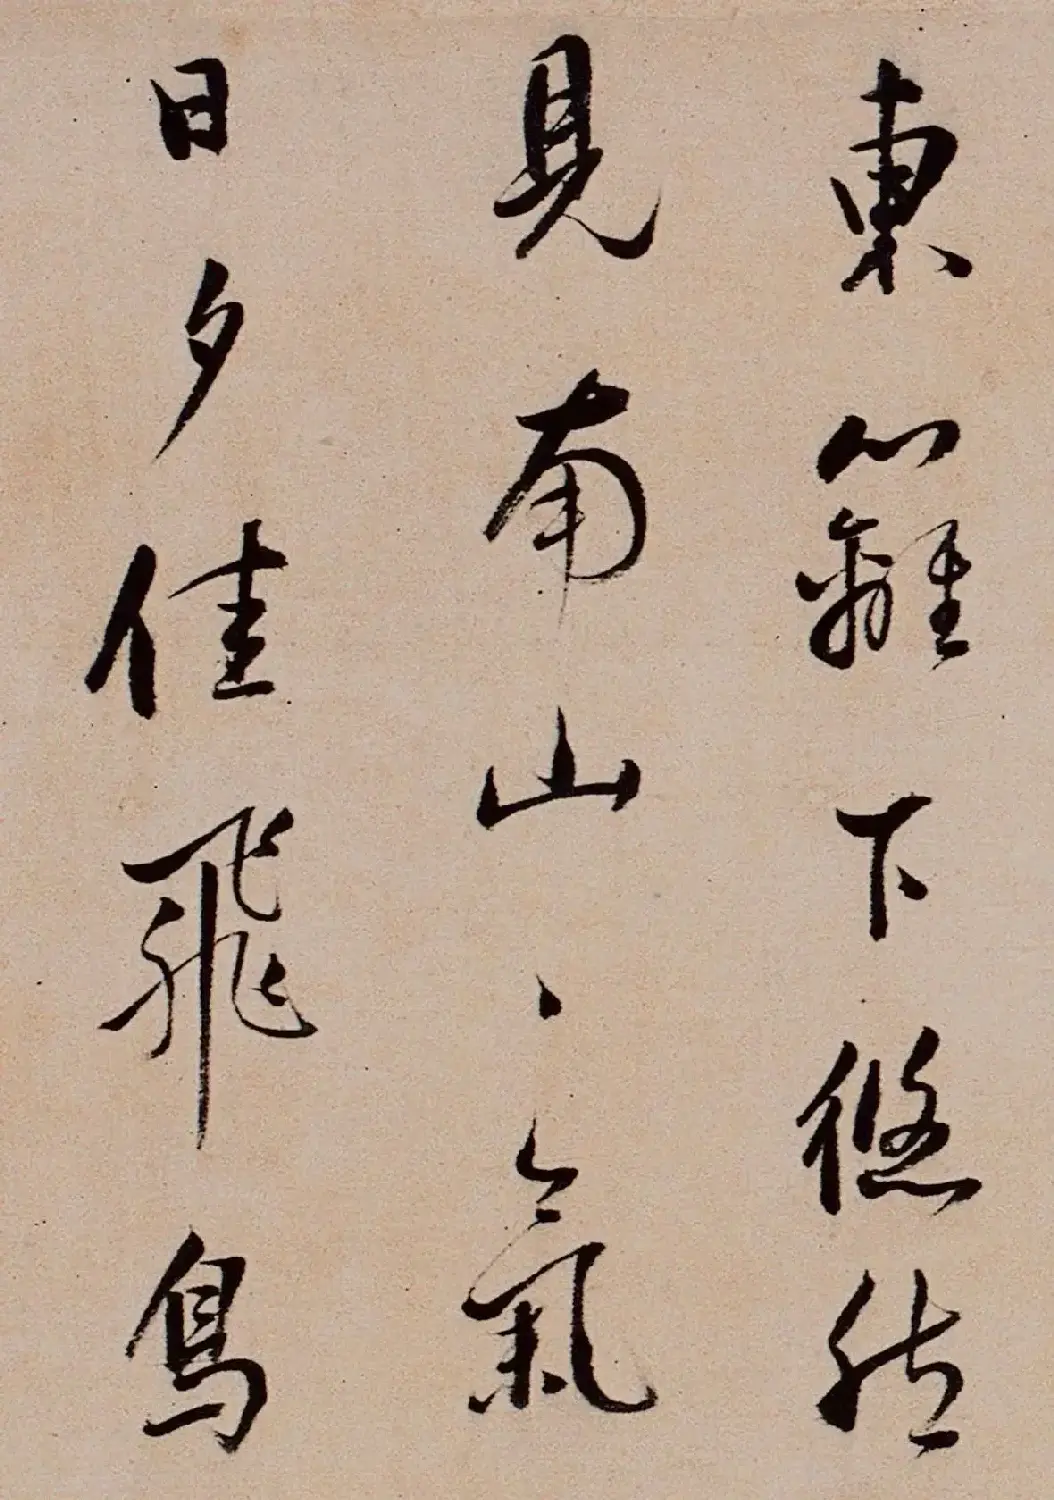 東籬下悠然
見南山山氣
日夕佳飛鳥